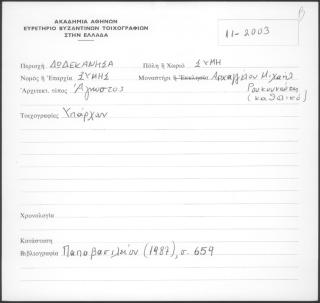 ΑΚΑΔΗΜΙΑ ΑΘΗΝΩΝ
ΕΥΡΕΤΗΡΙΟ ΒΥΖΑΝΤΙΝΩΝ ΤΟΙΧΟΓΡΑΦΙΩΝ
ΣΤΗΝ ΕΛΛΑΔΑ
11-2003
Περιοχή ΔΩΔΕΚΑΝΗΣΑ Πόλη ή Χωριό ΣΥΜΗ
Νομός ή Ἐπαρχία ΣΥΜΗΣ Μοναστήρι ή Ἐκκλησία Αρχαγγέλου Μιχαήλ
Ἀρχιτεκτ. τύπος Ἄγνωστος Ρουκουνιώτη
(καθολικό)
Τοιχογραφίες Ὑπάρχουν
Χρονολογία
Κατάσταση
Βιβλιογραφία Παπαβασιλείου (1987), σ. 659